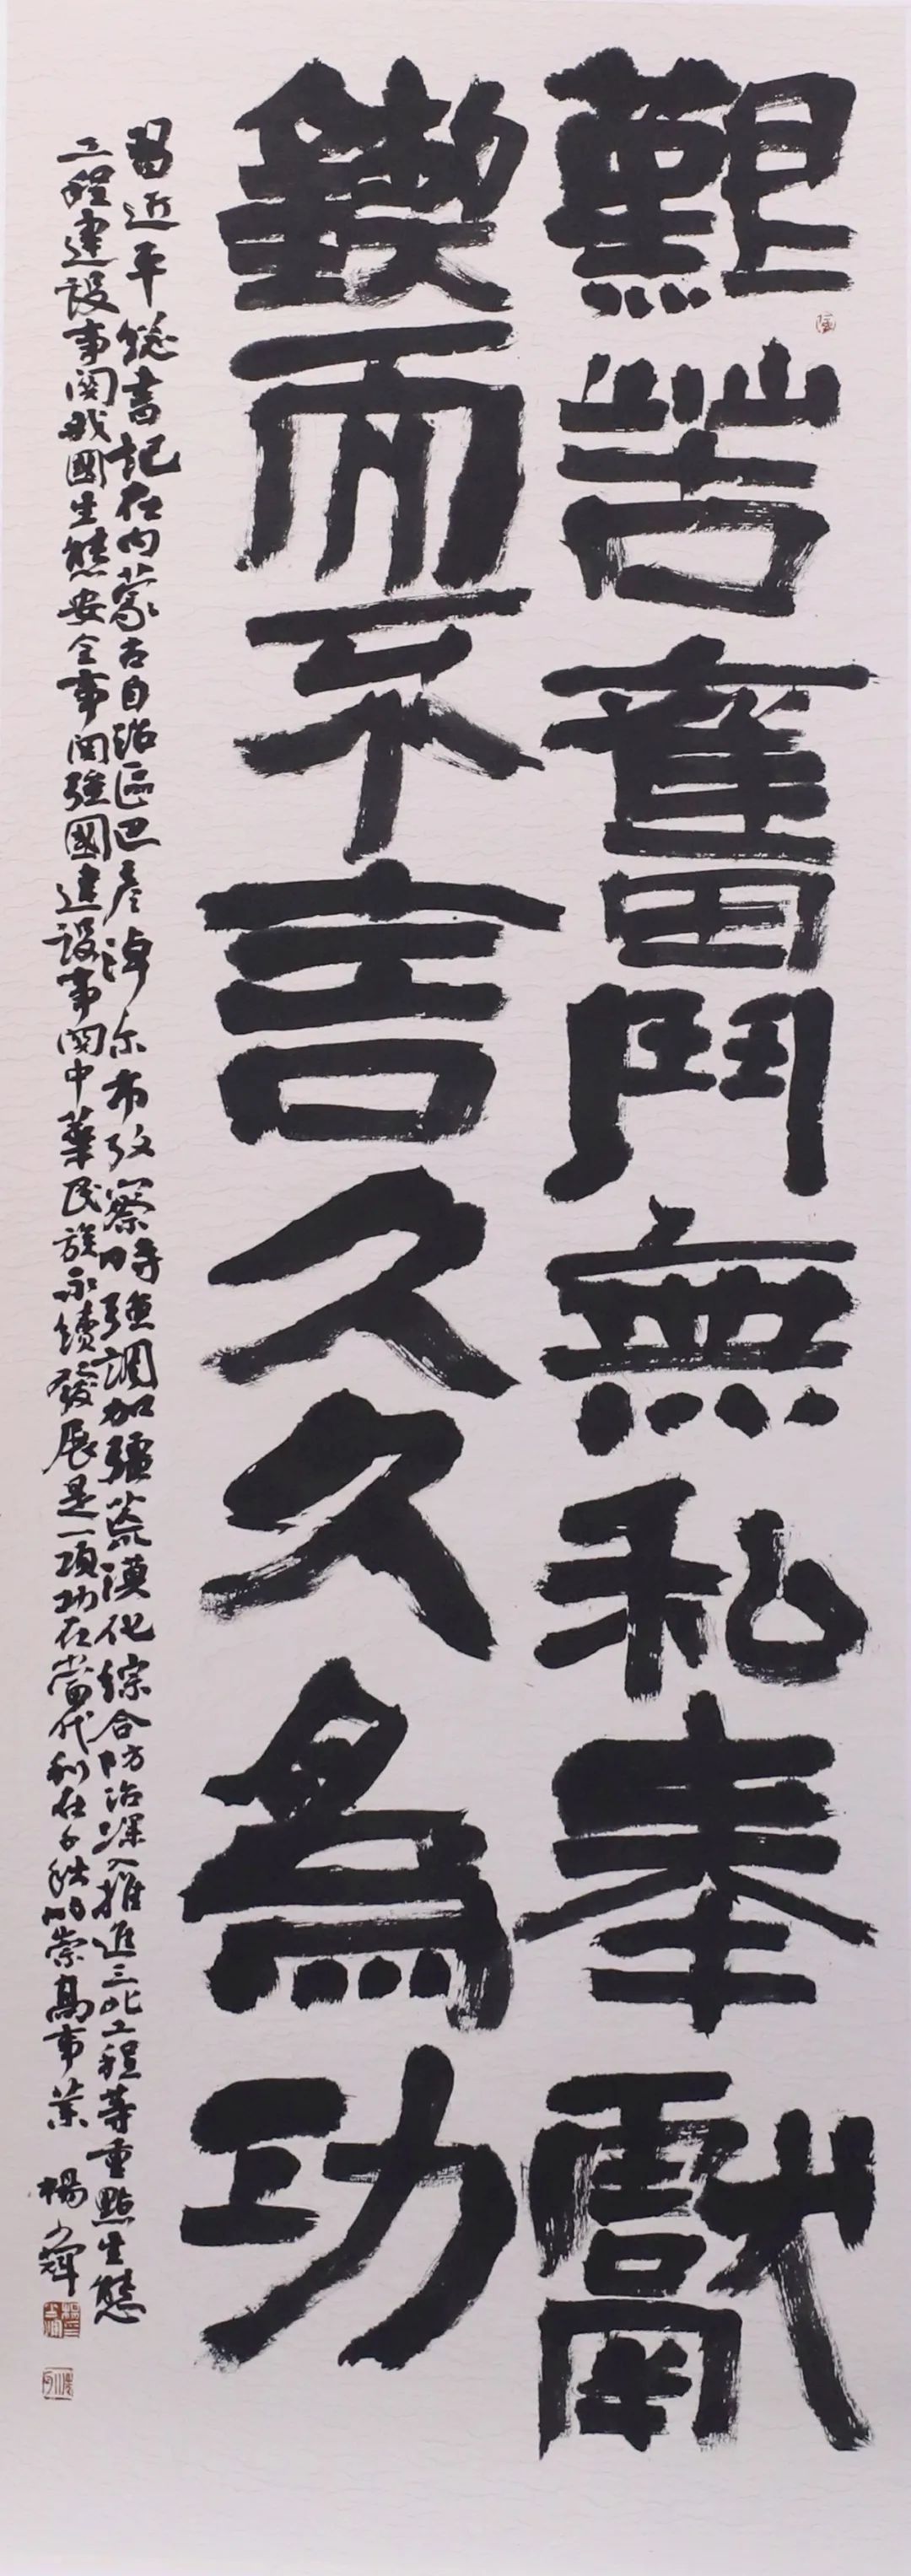 艱苦奮鬥無私奉獻
鍥而不舍久久為功
習近平總書記在內蒙古自治區巴彥淖尔市攷察時強調加強荒漠化綜合防治深入推進三北工程等重點生態
工程建設事關我國生態安全事關強國建設事關中華民族永續發展是一項功在當代利在千秋的崇高事業 楊